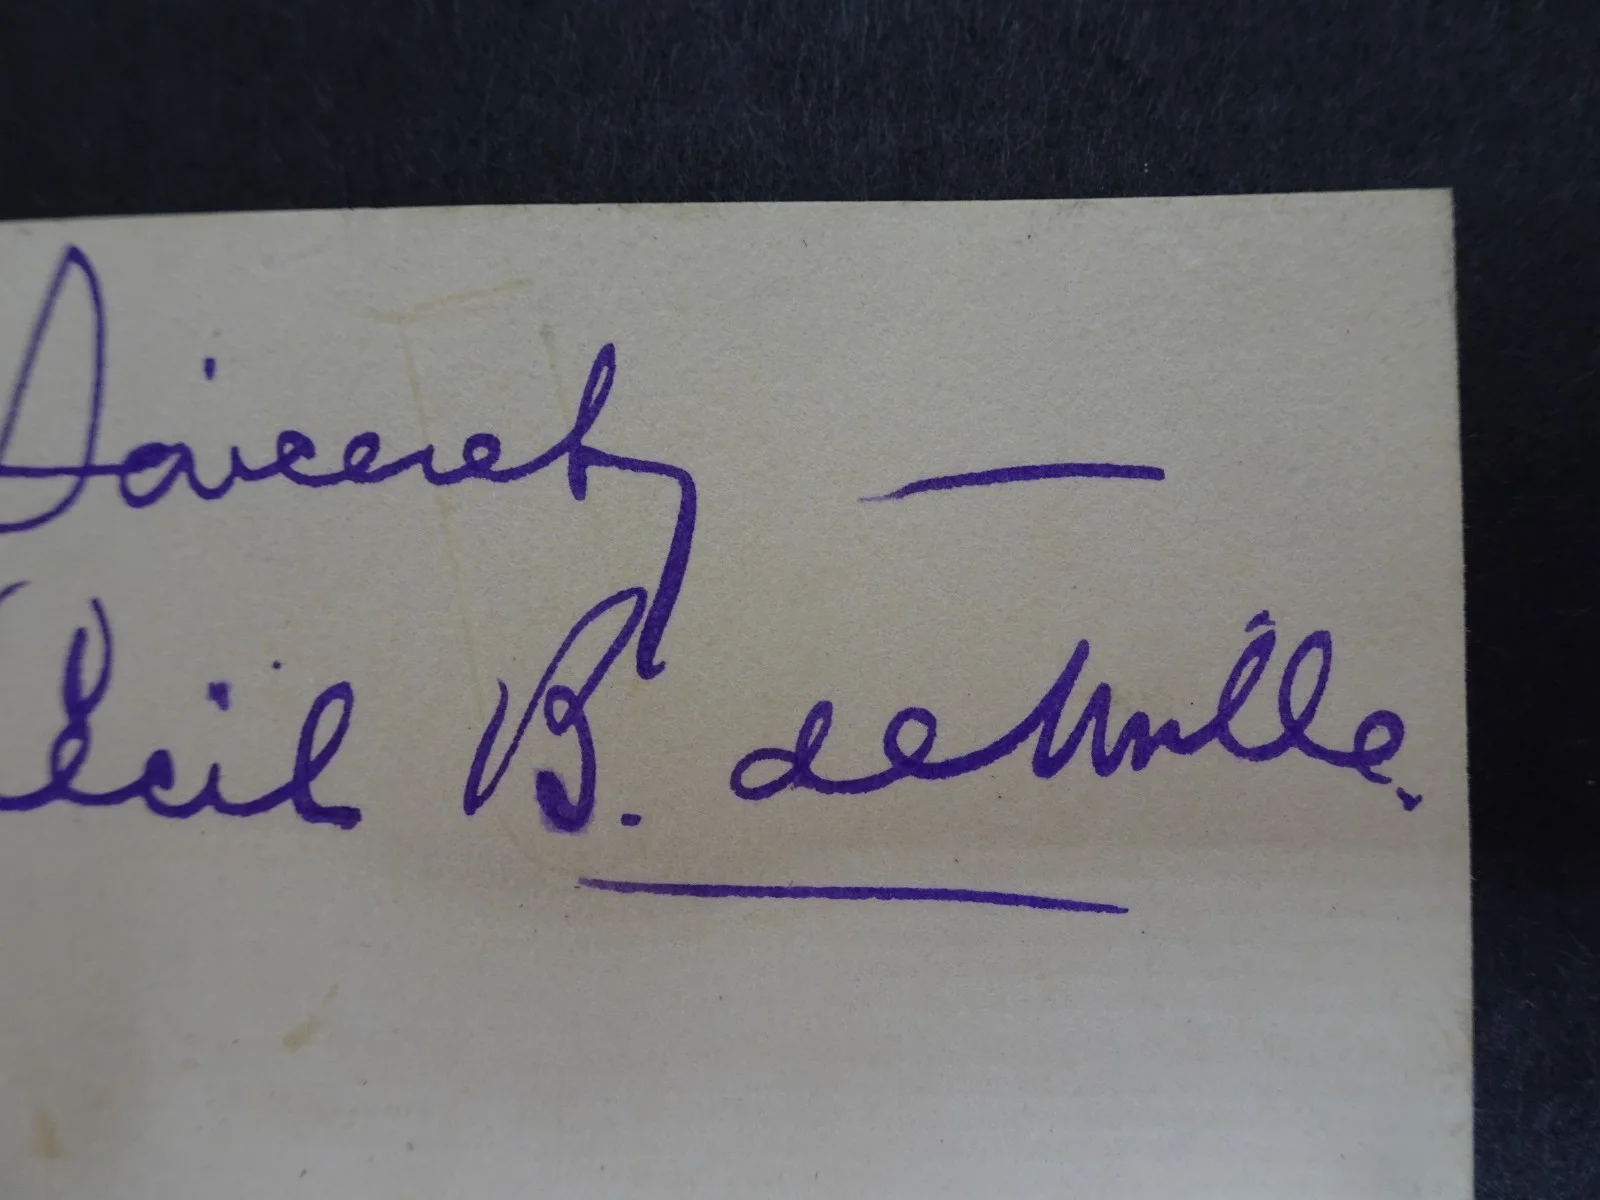 Sincerely —
Cecil B. deMille.